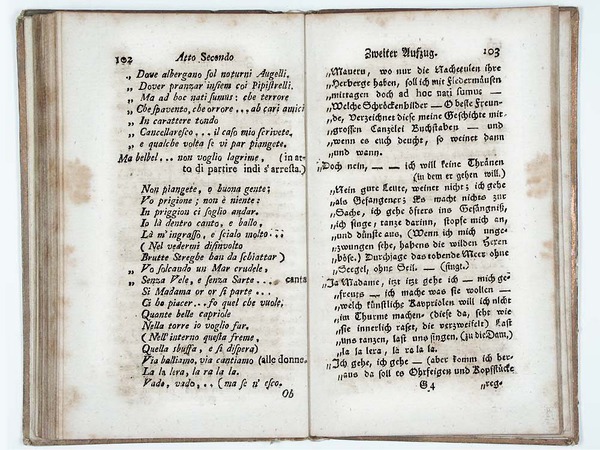 102 Atto Secondo
„ Dove albergano sol noturni Augelli.
„ Dover pranzar insiem coi Pipistrelli.
„ Ma ad hoc nati sumus: che terrore
„ Che spavento, che orrore... ab cari amici
„ In carattere tondo
„ Cancellaresco... il caso mio scrivete,
„ e qualche volta se vi par piangete.
Ma belbel... non voglio lagrime, (in at-
to di partire indi s'arresta.)
Non piangete, o buona gente;
Vo prigione; non è niente:
In priggion ci soglio andar.
Io là dentro canto, e ballo,
Là m'ingrasso, e scialo molto...
( Nel vedermi disinvolto
Brutte Streghe han da schiattar )
„ Vo solcando un Mar crudele,
„ Senza Vele, e senza Sarte... canta
Si Madama or or si parte...
Ci ho piacer...fo quel che vuole,
Quante belle capriole
Nella torre io voglio far.
( Nell'interno questa freme,
Quella sbuffa, e si dispera)
Via balliamo, via cantiamo (alle donne.
La la lera, la ra la la.
Vado, vado,.. (ma se n' esco.
Ob
Zweiter Aufzug. 103
„Mauern, wo nur die Nachteulen ihre
„Herberge haben, soll ich mit Fledermäusen
„mittagen doch ad hoc nati sumus —
„Welche Schröckenbilder — O beste Freun-
„de, Verzeichnet diese meine Geschichte mit
„grossen Canzelei Buchstaben — und
„wenn es euch deucht, so weinet dann
„und wann.
„Doch nein, — — ich will keine Thränen
(in dem er gehen will.)
„Mein gute Leute, weiner nicht; ich gehe
„als Gefangener; Es macht nichts zur
„Sache, ich gehe öfters ins Gefängniß,
„ich singe, tanze darinn, stopfe mich an,
„und dünste aus, (Wenn ich mich unge-
„zwungen sehe, habens die wilden Hexen
„böse.) Durchjage das tobende Meer ohne
„Seegel, ohne Seil. — (singt.)
„Ja Madame, izt izt gehe ich — mich ge-
„freuts — ich mache was sie wollen —
„welch künstliche Kapriolen will ich nicht
„im Thurme machen (diese da, sehr wie
„sie innerlich raset, die verzweifelt) Last
„uns tanzen, last uns singen, (zu die Dam,)
„la la lera, le ra la la.
„Ich gehe, ich gehe — (aber komm ich her-
„aus da soll es Ohrfeigen und Kopfstücke
G 4 „reg-